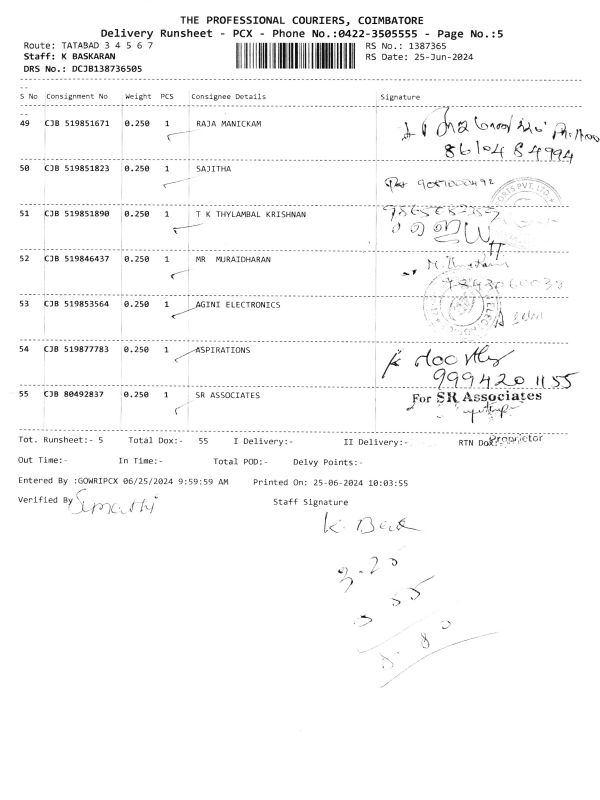 THE PROFESSIONAL COURIERS, COIMBATORE
Delivery Runsheet - PCX - Phone No.:0422-3505555 - Page No.:5
Route: TATABAD 3 4 5 6 7
RS No.: 1387365
Staff: K BASKARAN
RS Date: 25-Jun-2024
DRS No.: DCJB138736505
S No Consignment No Weight PCS Consignee Details Signature
49 CJB 519851671 0.250 1 RAJA MANICKAM
8610484994
50 CJB 519851823 0.250 1 SAJITHA
ORES PVT. LTD.
51 CJB 519851890 0.250 1 T K THYLAMBAL KRISHNAN
52 CJB 519846437 0.250 1 MR MURAIDHARAN
53 CJB 519853564 0.250 1 AGINI ELECTRONICS
54 CJB 519877783 0.250 1 ASPIRATIONS
9994201155
55 CJB 80492837 0.250 1 SR ASSOCIATES For SR Associates
Proprietor
Tot. Runsheet:- 5 Total Dox:- 55 I Delivery:- II Delivery:- RTN Dox
Out Time:- In Time:- Total POD:- Delvy Points:-
Entered By :GOWRIPCX 06/25/2024 9:59:59 AM Printed On: 25-06-2024 10:03:55
Verified By
Staff Signature